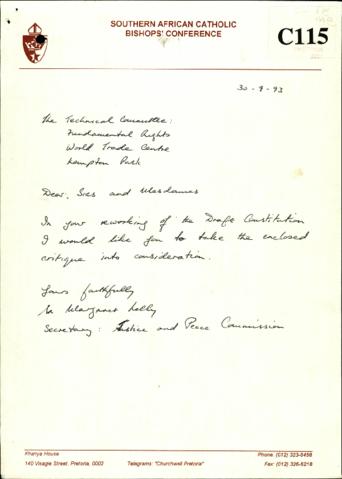 SOUTHERN AFRICAN CATHOLIC
BISHOPS' CONFERENCE
C115
30-9-93
The Technical Committee:
Fundamental Rights
World Trade Centre
Kempton Park
Dear, Sirs and Mesdames
In your reworking of the Draft Constitution
I would like you to take the enclosed
critique into consideration.
Yours faithfully
Sr Margaret Kelly
Secretary: Justice and Peace Commission
Khanya House
140 Visagie Street, Pretoria, 0002
Telegrams: "Churchwell Pretoria"
Phone: (012) 323-6458
Fax: (012) 326-6218